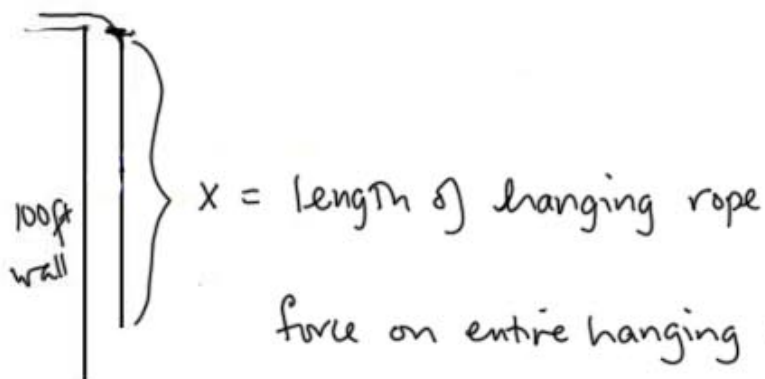 100ft
wall
x = length of hanging rope
force on entire hanging